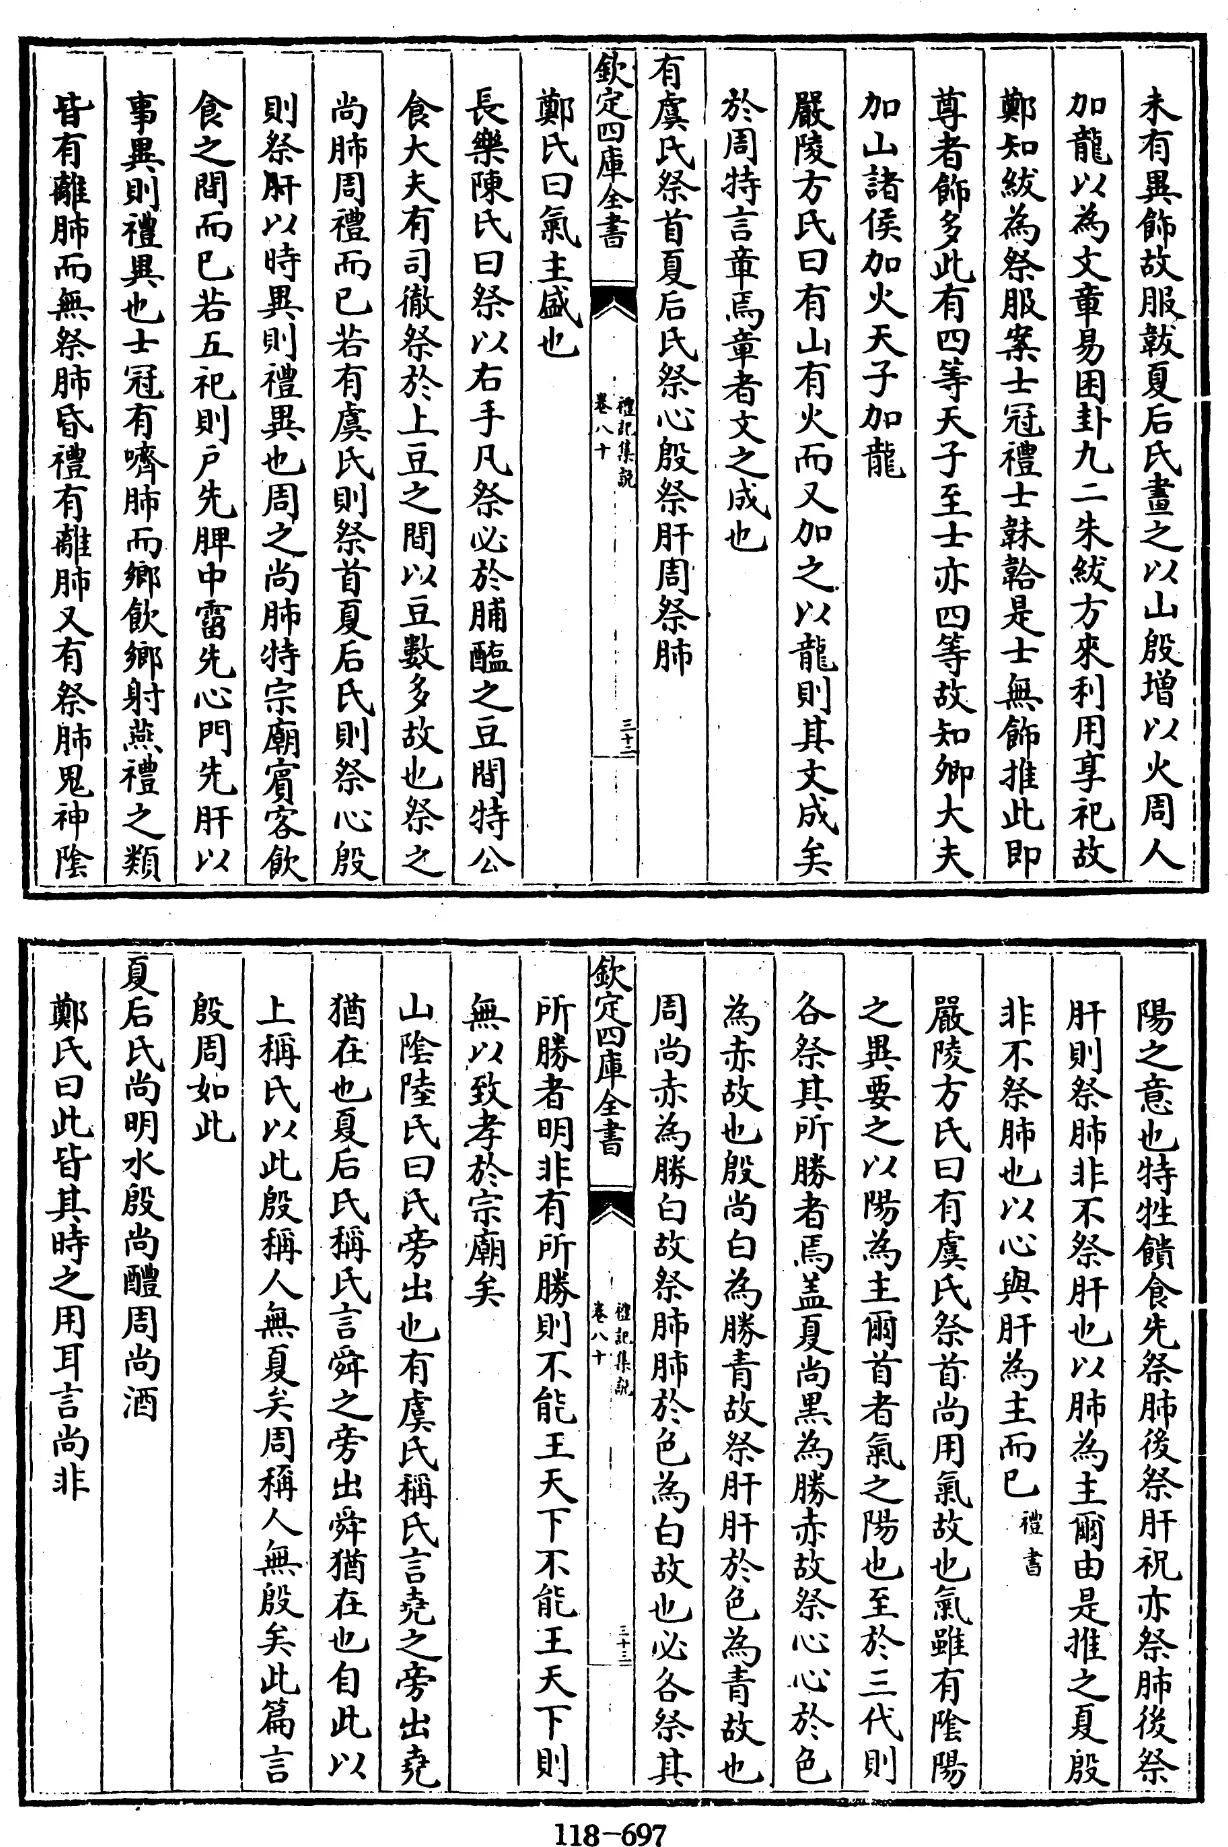 未有異飾故服韍夏后氏畫之以山殷增以火周人
加龍以為文章易困卦九二朱紱方來利用享祀故
鄭知紱為祭服案士冠禮士韎韐是士無飾推此即
尊者飾多此有四等天子至士亦四等故知卿大夫
加山諸侯加火天子加龍
嚴陵方氏曰有山有火而又加之以龍則其文成矣
於周特言章焉章者文之成也
有虞氏祭首夏后氏祭心殷祭肝周祭肺
欽定四庫全書
禮記集說
卷八十
三十二
鄭氏曰氣主盛也
長樂陳氏曰祭以右手凡祭必於脯醢之豆間特公
食大夫有司徹祭於上豆之間以豆數多故也祭之
尚肺周禮而已若有虞氏則祭首夏后氏則祭心殷
則祭肝以時異則禮異也周之尚肺特宗廟賓客飲
食之間而已若五祀則户先脾中霤先心門先肝以
事異則禮異也士冠有嚌肺而鄉飲鄉射燕禮之類
皆有離肺而無祭肺昏禮有離肺又有祭肺鬼神陰
陽之意也特牲饋食先祭肺後祭肝祝亦祭肺後祭
肝則祭肺非不祭肝也以肺為主爾由是推之夏殷
非不祭肺也以心與肝為主而已禮書
嚴陵方氏曰有虞氏祭首尚用氣故也氣雖有陰陽
之異要之以陽為主爾首者氣之陽也至於三代則
各祭其所勝者焉盖夏尚黑為勝赤故祭心心於色
為赤故也殷尚白為勝青故祭肝肝於色為青故也
周尚赤為勝白故祭肺肺於色為白故也必各祭其
欽定四庫全書
禮記集說
卷八十
三十三
所勝者明非有所勝則不能王天下不能王天下則
無以致孝於宗廟矣
山陰陸氏曰氏旁出也有虞氏稱氏言堯之旁出堯
猶在也夏后氏稱氏言舜之旁出舜猶在也自此以
上稱氏以此殷稱人無夏矣周稱人無殷矣此篇言
殷周如此
夏后氏尚明水殷尚醴周尚酒
鄭氏曰此皆其時之用耳言尚非
118-697